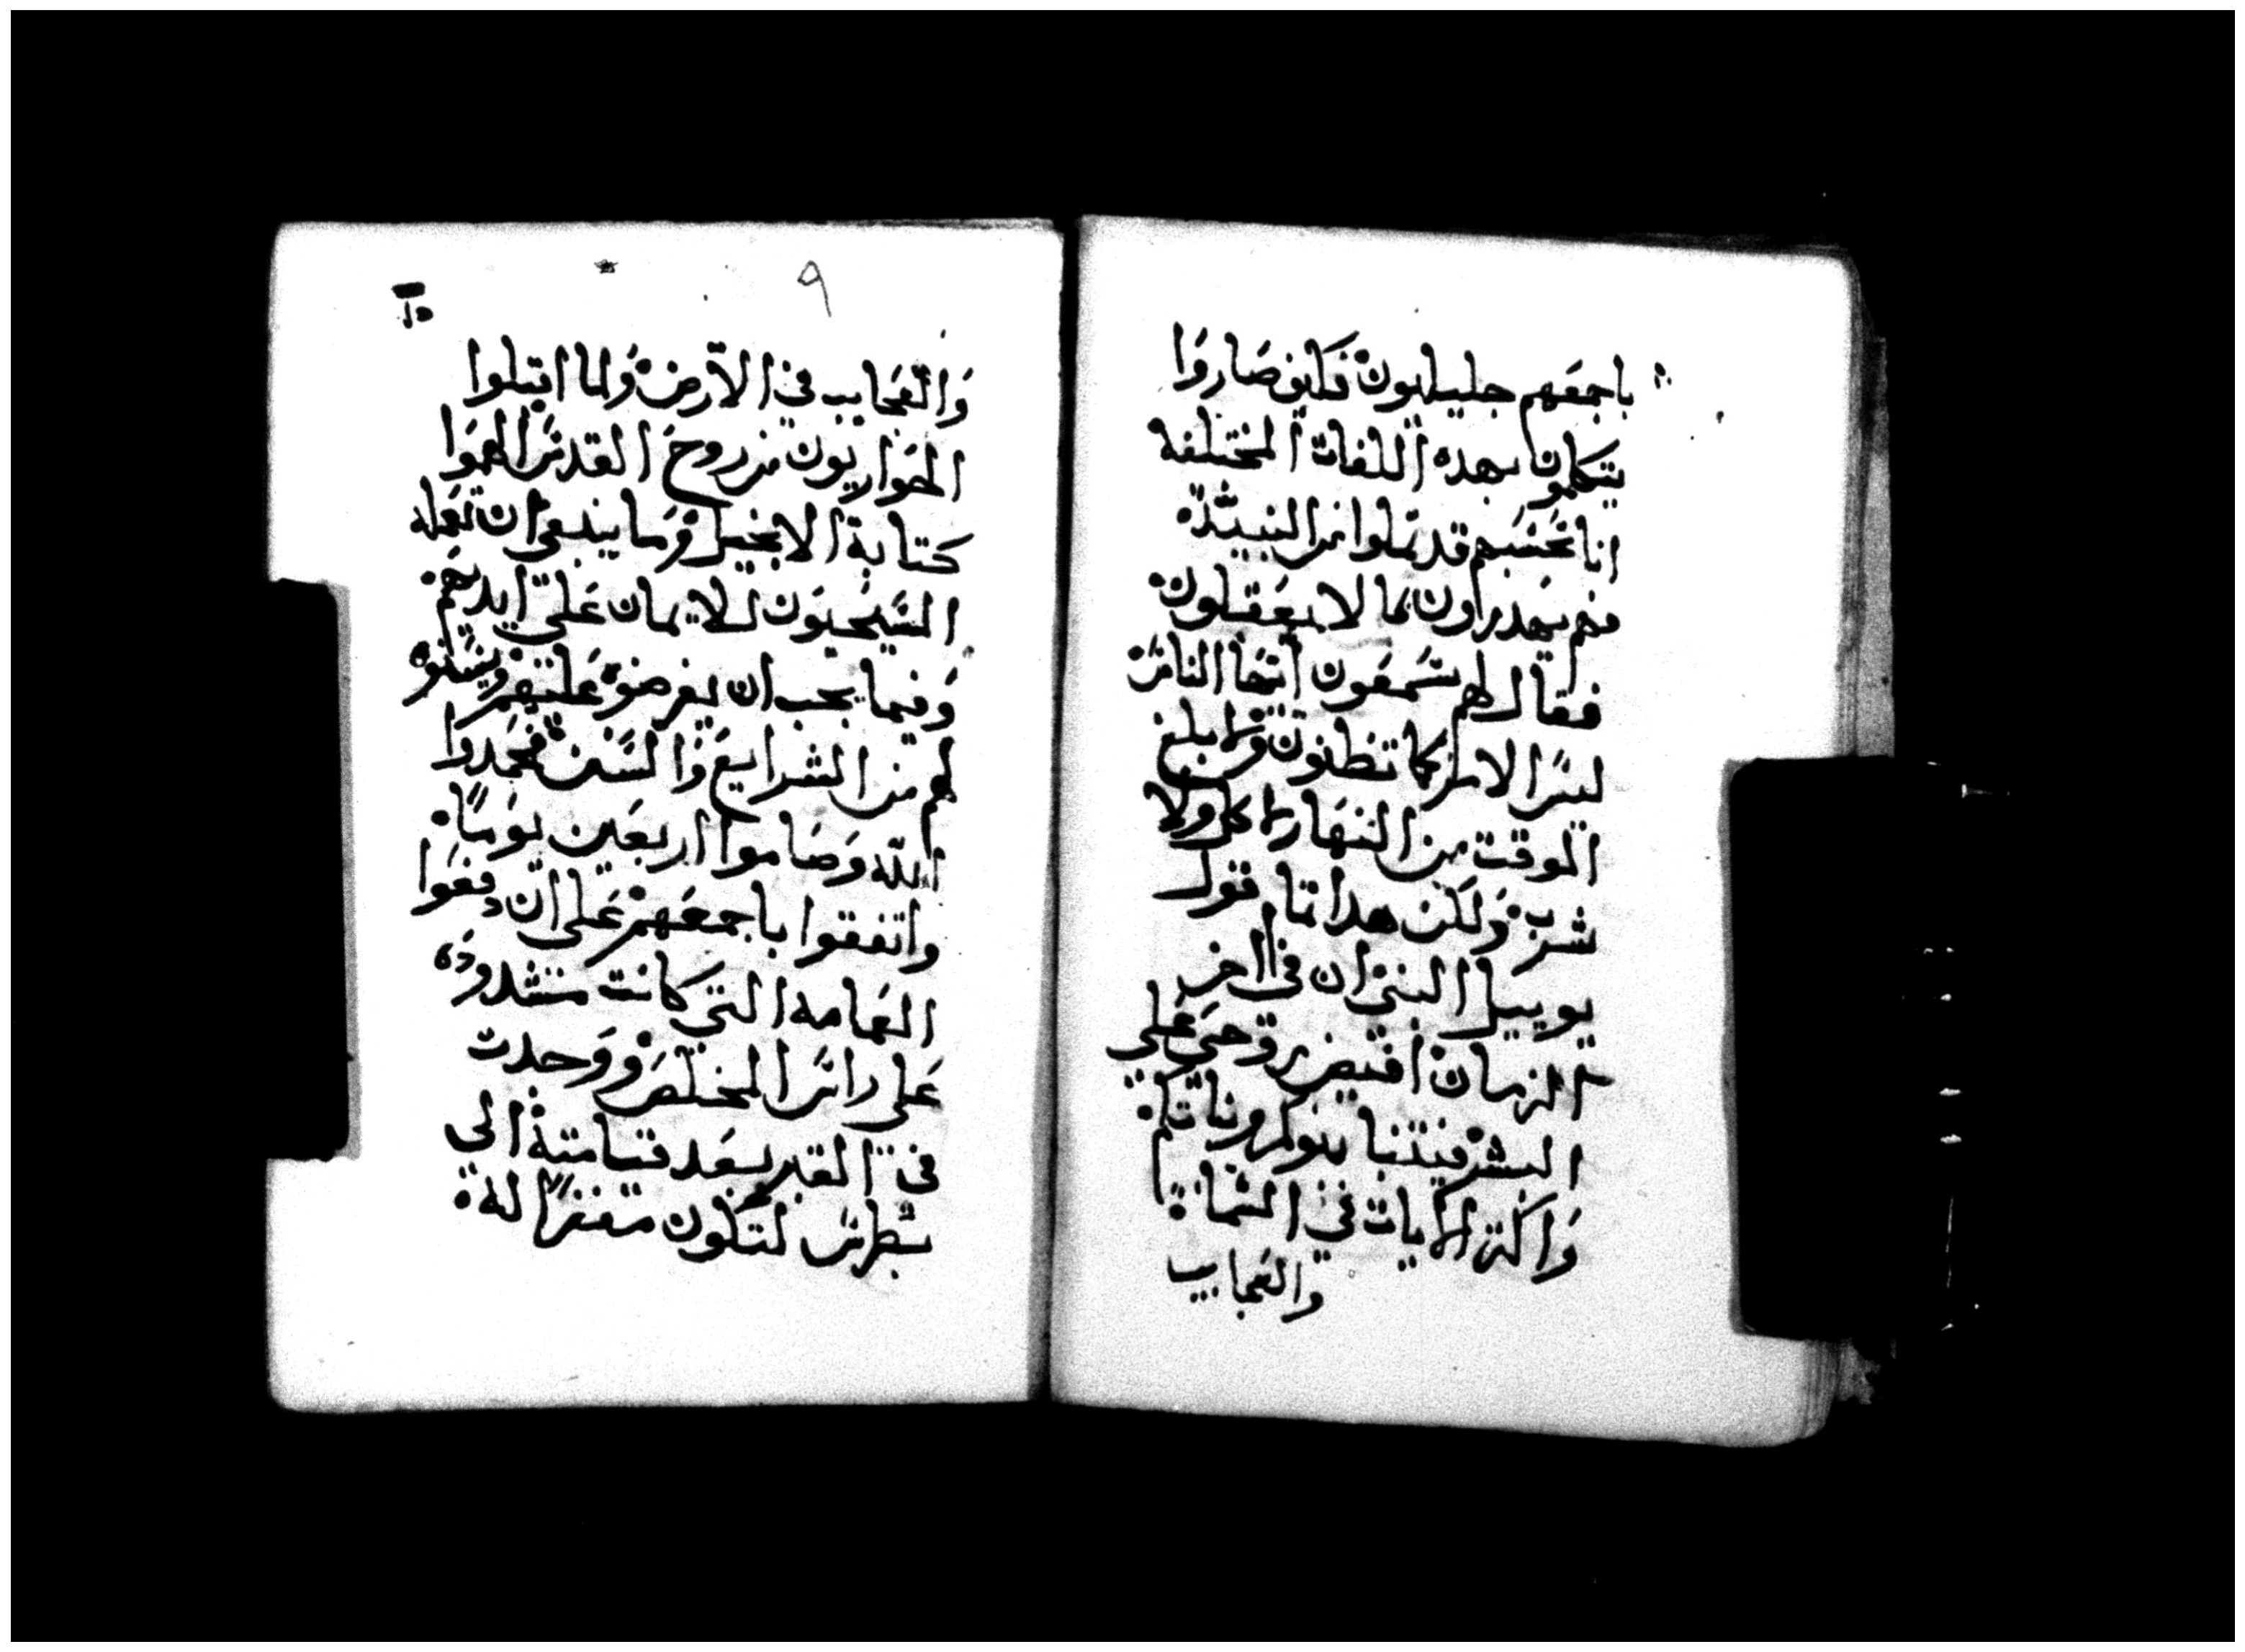 باجمعهم جليليون فكيف صاروا
يتكلمون بهده اللغات المختلفه
انا نحسبهم قد تملوا من النبيد
فهم يهدراون بما لا يعقلون
فقال لهم شمعون ايها الناس
ليس الامر كما تظنون وما بلغ
الوقت من النهار لاكل ولا
شرب ولكن هدا تمام قول
يوييل النبي ان في اخر
الزمان افيض روحي علي
البشر فيتنبا بنوكم وبناتكم
واكثر الايات في السما
والعجايب
٩
والعجايب في الارض ولما امتلوا
الحواريون من روح القدس الهموا
كتابة الانجيل وما ينبغي ان تعمله
المسيحيون للايمان علي ايديهم
وفيما يجب ان يفرضوه عليهم ويسنوه
لهم من الشرايع والسنن فحمدوا
الله وصاموا اربعين يوما
واتفقوا باجمعهم على ان دفعوا
العمامه التي كانت مشدوده
على راس المخلص ووجدت
في القبر بعد قيامته الي
بطرس لتكون مفخرا له